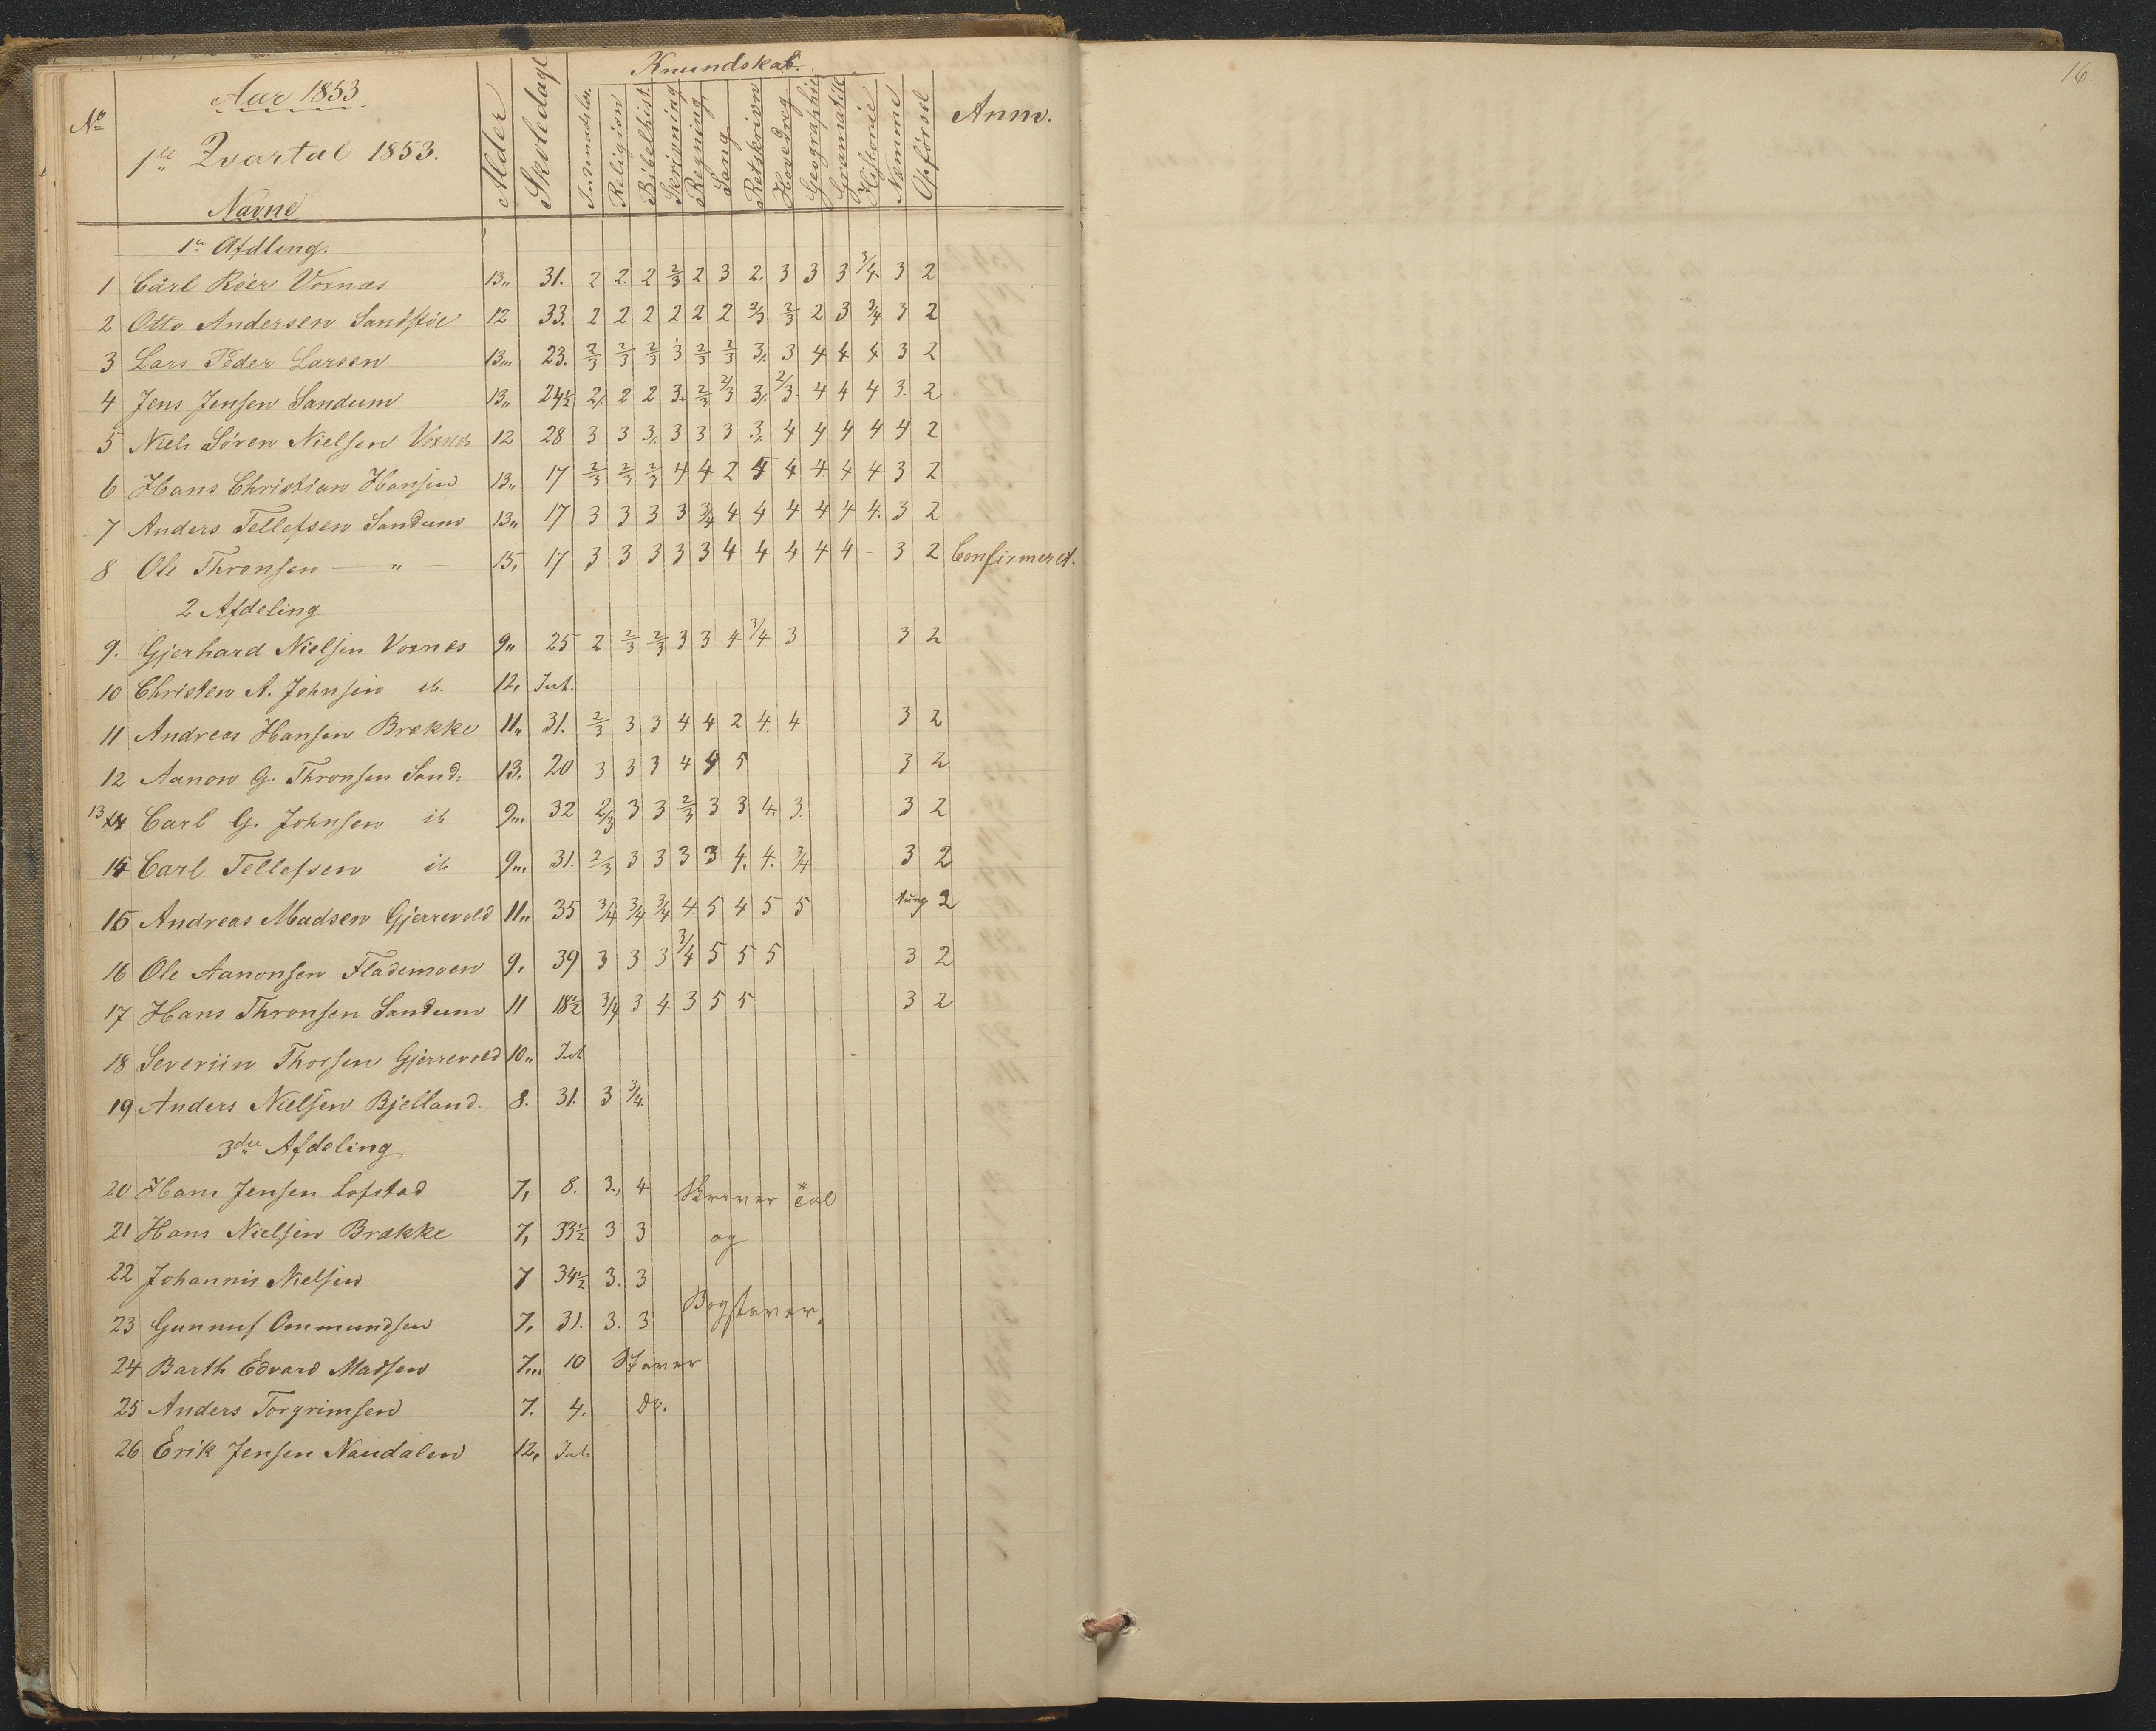 16
Aar 1853. Kundskab.
No 1te Qvartal 1853. Alder Skoledage Religion Bibelhist. Skrivning Regning Sang Retskrivn Hovedreg Geographie Gramatik Historie Nemme Opførsel Anm.
Navne
1te Afdling.
1 Carl Röer Voxnæs 13„ 31. 2 2. 2 2/3 2 3 2. 3 3 3 3/4 3 2
2 Otto Andersen Sandstöe 12 33. 2 2 2 2 2 2 2/3 2/3 2 3 3/4 3 2
3 Lars Peder Larsen 13„, 23. 2/3 2/3 2/3 3 2/3 2/3 3. 3 4 4 4 3 2
4 Jens Jensen Sandum 13„ 24½ 2. 2 2 3. 2/3 2/3 3. 2/3 4 4 4 3. 2
5 Niels Sören Nielsen Voxnæs 12 28 3 3 3. 3 3 3 3. 4 4 4 4 4 2
6 Hans Christian Hansen 13„ 17 2/3 2/3 2/3 4 4 2 5 4 4. 4 4 3 2
7 Anders Tellefsen Sandum 13„ 17 3 3 3 3 3/4 4 4 4 4 4 4. 3 2
8 Ole Thronsen — „ — 15, 17 3 3 3 3 3 4 4 4 4 4 - 3 2 Confirmered.
2 Afdeling
9. Gjerhard Nielsen Voxnæs 9„ 25 2 2/3 2/3 3 3 4 3/4 3 3 2
10 Christen A. Johnsen ib. 12,
11 Andreas Hansen Brække 11„ 31. 2/3 3 3 4 4 2 4. 4 3 2
12 Aanon G. Thronsen Sand: 13. 20 3 3 3 4 4 5 3 2
13 Carl G. Johnsen ib 9„, 32 2/3 3 3 2/3 3 3 4. 3. 3 2
14 Carl Tellefsen ib 9„, 31. 2/3 3 3 3 3 4. 4. 3/4 3 2
15 Andreas Madsen Gjerrevold 11„ 35 3/4 3/4 3/4 4 5 4 5 5 tung 2
16 Ole Aanonsen Flademoen 9, 39 3 3 3 3/4 5 5 5 3 2
17 Hans Thronsen Sandum 11 18½ 3/4 3 4 3 5 5 3 2
18 Severiin Thorsen Gjerrevold 10„
19 Anders Nielsen Bjelland. 8. 31. 3 3/4
3die Afdeling
20 Hans Jensen Lofstad 7, 8. 3., 4 Skriver
21 Hans Nielsen Brække 7, 33½ 3 3 og
22 Johannis Nielsen 7 34½ 3. 3
23 Gunnuf Ommundsen 7, 31. 3. 3 Bogstaver.
24 Barth Edvard Madsen 7„, 10 Staver
25 Anders Torgrimsen 7. 4. do.
26 Erik Jensen Naudalen 12,